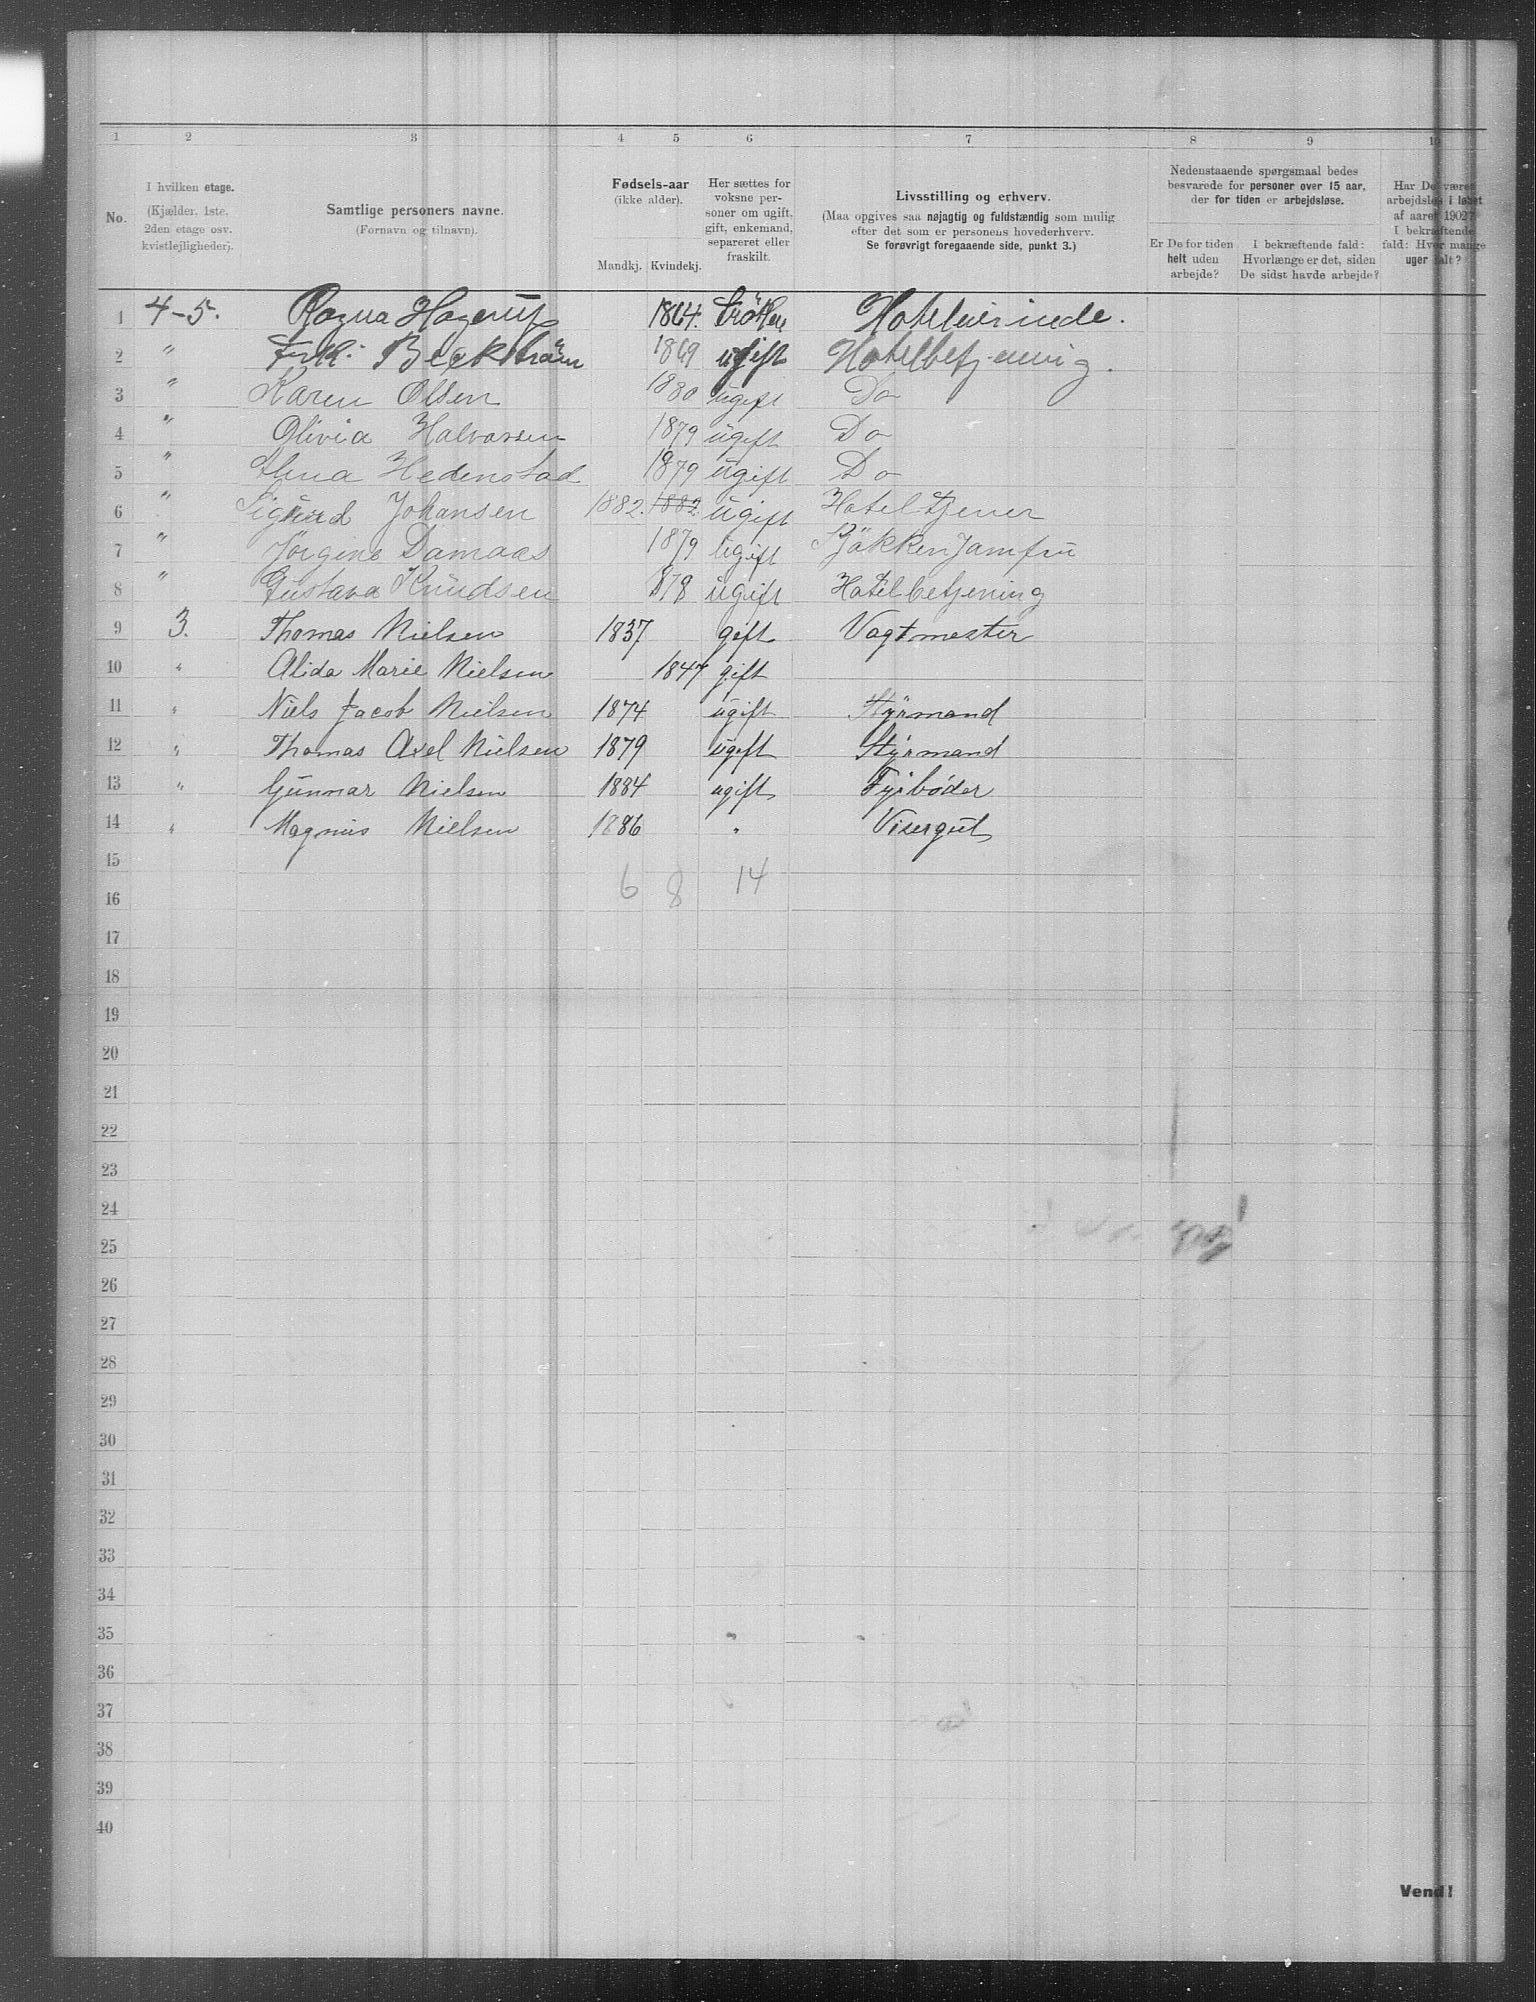 1 2 3 4 5 6 7 8 9 10
No.
I hvilken etage.
(Kjælder, 1ste,
2den etage osv.
kvistlejligheder).
Samtlige personers navne.
(Fornavn og tilnavn).
Fødsels-aar
(ikke alder).
Mandkj. Kvindekj.
Her sættes for
voksne per-
soner om ugift,
gift, enkemand,
separeret eller
fraskilt.
Livsstilling og erhverv.
(Maa opgives saa nøjagtig og fuldstændig som mulig
efter det som er personens hovederhverv.
Se forøvrigt foregaaende side, punkt 3.)
Nedenstaaende spørgsmaal bedes
besvarede for personer over 15 aar,
der for tiden er arbejdsløse.
Er De for tiden
helt uden
arbejde?
I bekræftende fald:
Hvorlænge er det, siden
De sidst havde arbejde?
Har De været
arbejdsløs i løbet
af aaret 1902?
I bekræftende
fald: Hvor mange
uger ialt?
1 4-5. Ragna Hagerup 1864. Hotelværinde.
2 " Frk: Beckström 1869 ugift Hotelbetjening.
3 " Karen Olsen 1880 ugift Do
4 " Olivia Halvorsen 1879 ugift Do
5 " Anna Hedenstad 1879 ugift Do
6 " Sigurd Johansen 1882. 1882 ugift Hoteltjener
7 " Jörgine Damaas 1879 ugift Kjökkenjomfru
8 " Gustava Knudsen 1878 ugift Hotelbetjening
9 3. Thomas Nielsen 1837 gift Vagtmester
10 " Alida Marie Nielsen 1847 gift
11 " Niels Jacob Nielsen 1874 ugift Styrmand
12 " Thomas Axel Nielsen 1879 ugift Styrmand
13 " Gunnar Nielsen 1884 ugift Fyrbøder
14 " Magnus Nielsen 1886 " Visergut
15
6 8 14
16
17
18
19
20
21
22
23
24
25
26
27
28
29
30
31
32
33
34
35
36
37
38
39
40
Vend!